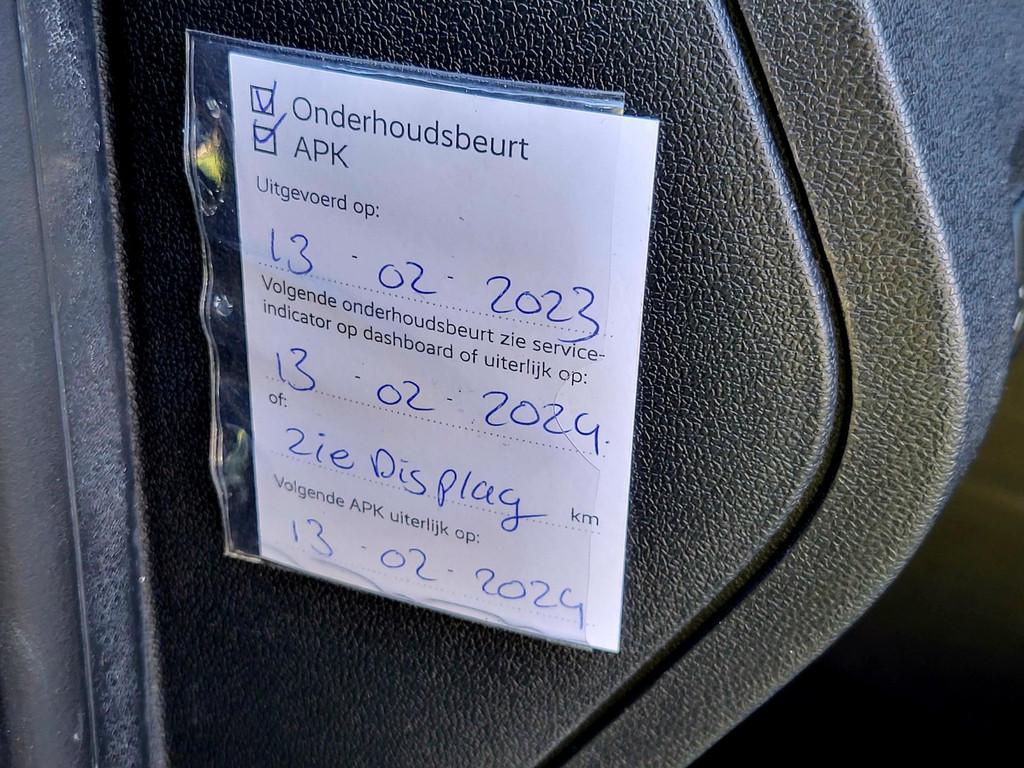 Onderhoudsbeurt
APK
Uitgevoerd op:
13 - 02 - 2023
Volgende onderhoudsbeurt zie service-
indicator op dashboard of uiterlijk op:
13 - 02 - 2024.
of:
zie Display km
Volgende APK uiterlijk op:
13 - 02 - 2024